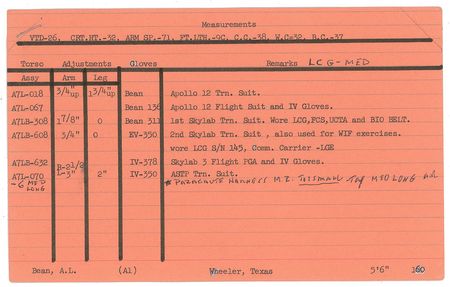 Measurements
VTD-26, CRT.HT.-32, ARM SP.-71, FT.LTH.-9C, C.C.-38, W.C-32, B.C.-37
Torso Adjustments Gloves Remarks LCG-MED
Assy Arm Leg
A7L-018 3/4"up 1 3/4"up Bean Apollo 12 Trn. Suit.
A7L-067 Bean 136 Apollo 12 Flight Suit and IV Gloves.
A7LB-308 1 7/8" 0 Bean 311 1st Skylab Trn. Suit. Wore LCG,FCS,UCTA and BIO BELT.
A7LB-608 3/4" 0 EV-350 2nd Skylab Trn Suit , also used for WIF exercises.
wore LCG S/N 143, Comm. Carrier -LGE
A7LB-632 IV-378 Skylab 3 Flight PGA and IV Gloves.
R-2 1/2
A7L-070 L-3" 2" IV-350 ASTP Trn. Suit.
6 MED LONG * PARACHUTE HARNESS MED LONG
Bean, A.L. (Al) Wheeler, Texas 5'6" 160